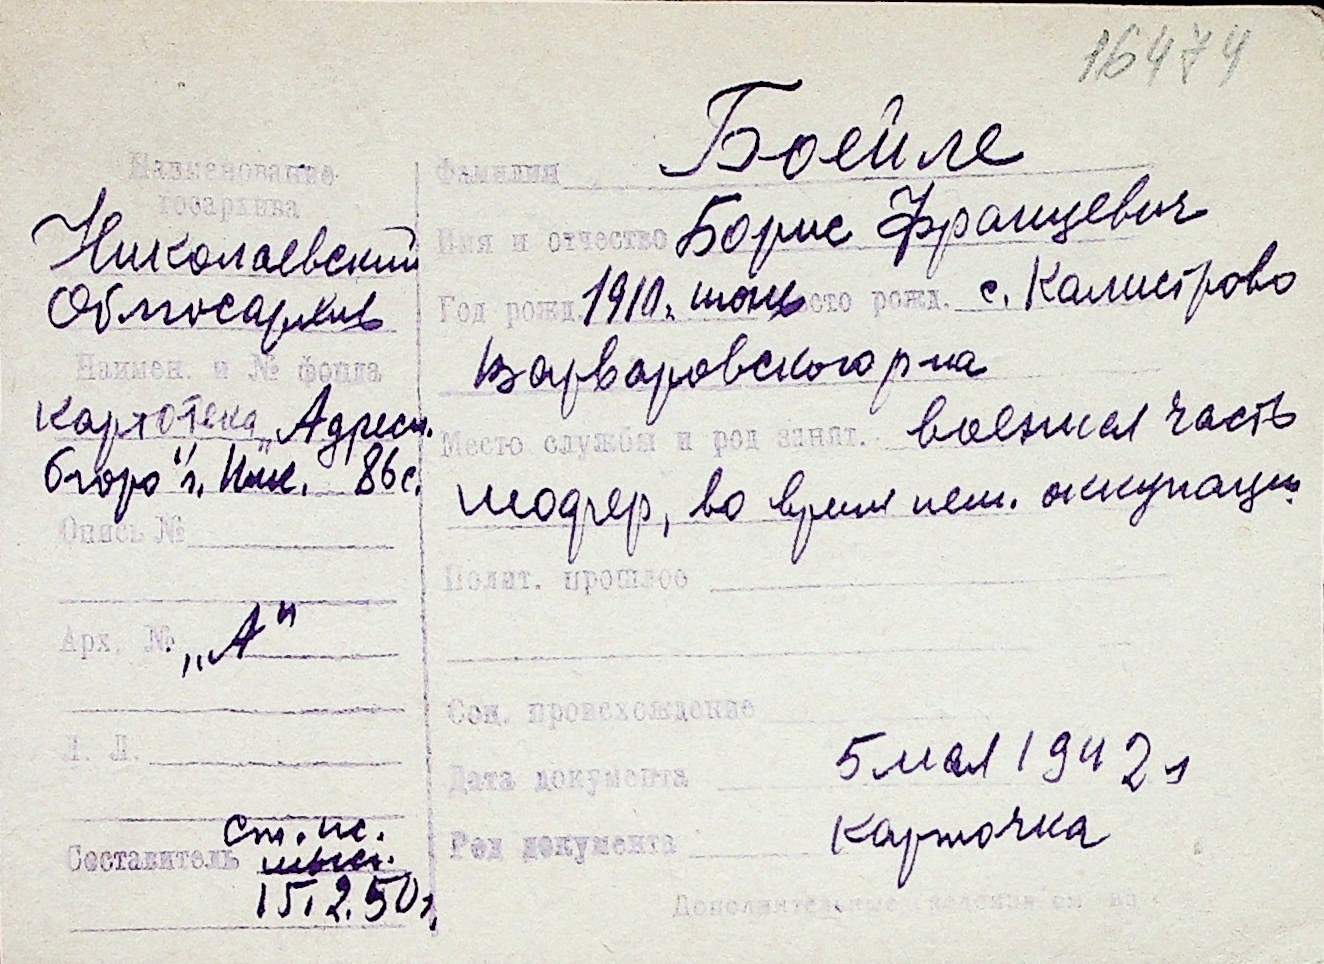 16474
Наименование
госархива
Николаевский
Облгосархив
Наимен. и № фонда
картотека „Адресн.
бюро" г. Ник. 86с.
Опись №
Арх. № „А"
Л. Л.
Составитель ст. ис.
15.2.50г.
Фамилия Боейле
Имя и отчество Борис Францевич
Год рожд. 1910г. июнь Место рожд. с. Калистрово
Варваровского р-на
Место службы и род занят. военная часть
шофер, во время нем. оккупации
Полит. прошлое
Соц. происхождение
Дата документа 5 мая 1942 г
Род документа карточка
Дополнительные сведения см. на